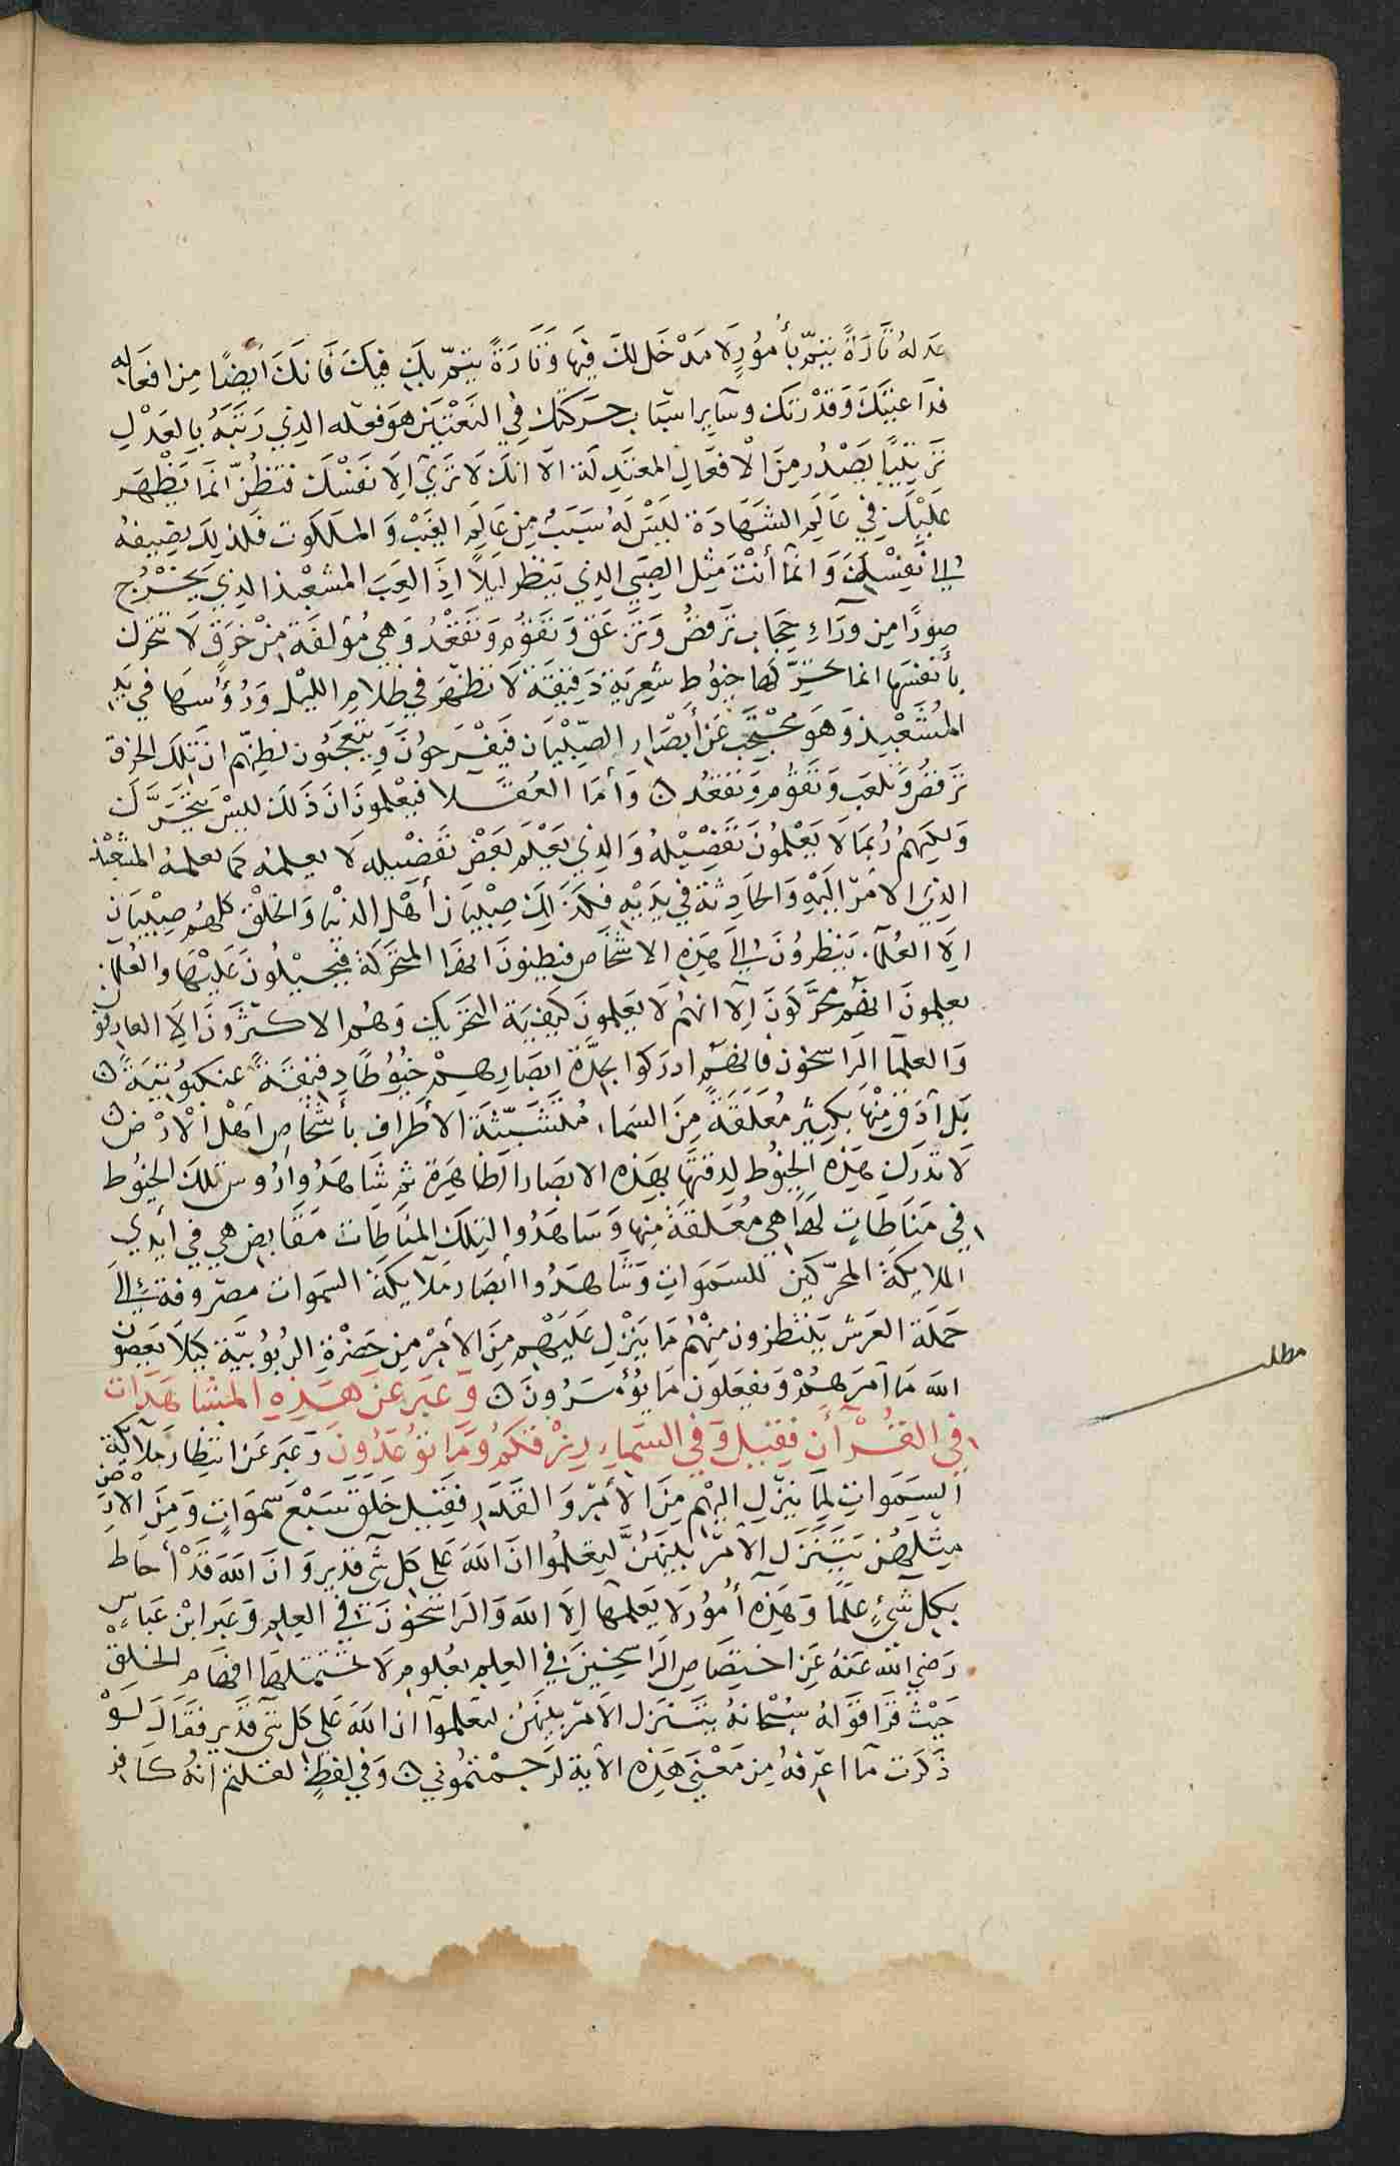 عدله تَارَةً يتمّ بأمُورٍ لَا مَدْخَل لكَ فِيهَا وَتَارَةً يتمّ بكَ فيكَ فَانكَ أيضًا مِن افعَاله
فداعيتكَ وَقدْرتكَ وسَاير اسْبَاب حَركتكَ فِي التعْيين هوَ فعْله الذِي رَتبَهُ بالعَدْلِ
تَرتيْبًا يَصْدُر مِنَ الأفعَالِ المعتَدِلَة الا انكَ لَا تَري الا نَفسْكَ فتظُنّ انمَا يَظْهَر
عَليْكَ فِي عَالَم الشهَادَة لَيْسَ لهُ سَبَبٌ مِن عَالِم الغَيْب وَالملكوت فلذلِكَ تضِيفهُ
الي نَفسْكَ وَانمَا أنتَ مثل الصَبي الذِي ينظر ليْلاً اذَا لعِبَ المشعْبذ الذِي يَخْرُج
صِورًا مِن وَرَاءِ حِجَاب تَرقصُ وَتَزعَقُ وَتَقوُم وَتَقعْدُ وَهِي مُؤلفَة مِنْ خرَقٍ لَا تتحَركَ
بأنفسَها انما تحَرّكهَا خيُوط شعِريَة دَقِيقَة لَا تظهَر فِي ظلَامِ الليْل وَرُؤُسهَا فِي يَدِ
المُشَعْبِذ وَهوَ مُحْتجَبٌ عَن أبصَار الصِّبْيَان فيَفرَحوُنَ وَيتعجَبُون لظنّهم ان تلكَ الخرق
تَرقصُ وَتلعَب وَتقوُم وَتقعْد ن وَأمَا العُقلَا فيَعْلمونَ انَ ذَلكَ ليسْ يتحَرَّك
وَلكِنهُم رُبمَا لَا يَعْلمُونَ تفضِيْلهُ وَالذِي يَعْلَم بَعْض تفضِيله لَا يعلمُه كمَا يعلمهُ المشعْبذ
الذِي الأمْر اليَهِ وَالحَادِثة فِي يَديْهِ فكذَلكَ صِبْيَان أهْل الدنيَا وَالخَلقْ كلهمُ صِبْيَان
الا العُلمَا. ينظرُونَ اليَ هَذِه الاشخَاص فيظنوُنَ انهَا المتحَرّكَة فيَحيْلُونَ عَليْهَا وَالعُلمَا
يعلمونَ انهُم محَرّكونَ الا انهُم لَا يَعْلمونَ كيْفِيَة التحَريك وَهمُ الاكثَرُونَ الا العَارفوُ
وَالعلمَا الرَاسخوُن فَانهُم ادرَكوُا بحدَّة ابصَارِهِمْ خيُوطًا دَقِيقَةً عنكبوُتيَةً ن
بَل أدَق مِنْهَا بكثِير مُعَلقَةً مِنَ السَمَاءِ مُتشَبّثةَ الأطرَاف بأشخَاصِ أهْل الأرْض ن
لَا تدْرك هَذِه الخيُوط لدقتهَا بهذِه الابصَار الظاهِرَة ثم شَاهَدُوا رُؤس تلكَ الخيُوط
في مَنَاطَاتٍ لهَا هِي مُعَلقَةٌ مِنهَا وَشاهَدُوا لتِلكَ المنَاطات مَقَابض هي فِي أيْدِي
الملَايكة المحَرّكين للسَمَوات وَشاهَدُوا أبصَار مَلَايكَة السَمَوات مصرُوفة الي
حَملَة العَرش يَنتظرُون مِنهُمْ مَا ينْزل عَليهْم مِنَ الأمْر مِن حَضْرَةِ الربوُبيَّة كيْلَا يَعصوُن
اللهَ مَا أمَرهمُ وَيفعَلوُن مَا يُؤْمَرُونَ ن وَعَبَرَ عَن هَذِهِ المشَاهَدَات
في القُرْآن فقيْل وَفي السَمَاءِ رزْقكمُ وَمَا توُعَدُونَ وَعبرَ عَن انتظَار مَلَائكةِ
السَمَوات لِمَا ينْزل اليْهم مِنَ الأمْر وَالقَدَر فقيْل خَلقَ سَبْعَ سَموَاتٍ وَمِنَ الأرْض
مِثْلهُن يَتَنَزل الأمْر بيْنهُنَّ ليَعْلموُا انَ اللهَ عَلي كل شَي قديْر وَانَ اللهَ قَدْ أحَاط
بكل شَيْءٍ علمًا وَهَذِه أمُوُر لَا يَعْلمهَا الا اللهَ وَالرَاسخوُنَ في العِلِم وَعَبر ابْن عبَاسٍ
رَضيَ الله عَنهُ عَن اختصَاص الرَاسخِيْنَ في العِلم بعلوُم لَا تحتملهَا افهَام الخلقْ
حَيْث قرَا قوْلهُ سُبْحَانهُ يتنَزل الأمْر بيْنهُن لتعْلموُا ان اللهَ عَلي كل شَي قديْر فقالَ لَوْ
ذَكَرت مَا اعرفهُ مِن مَعْنَي هَذِه الأيَة لرَجمْتُمُوني ن وَفي لفظٍ لقلتم انهُ كافر
مطلب